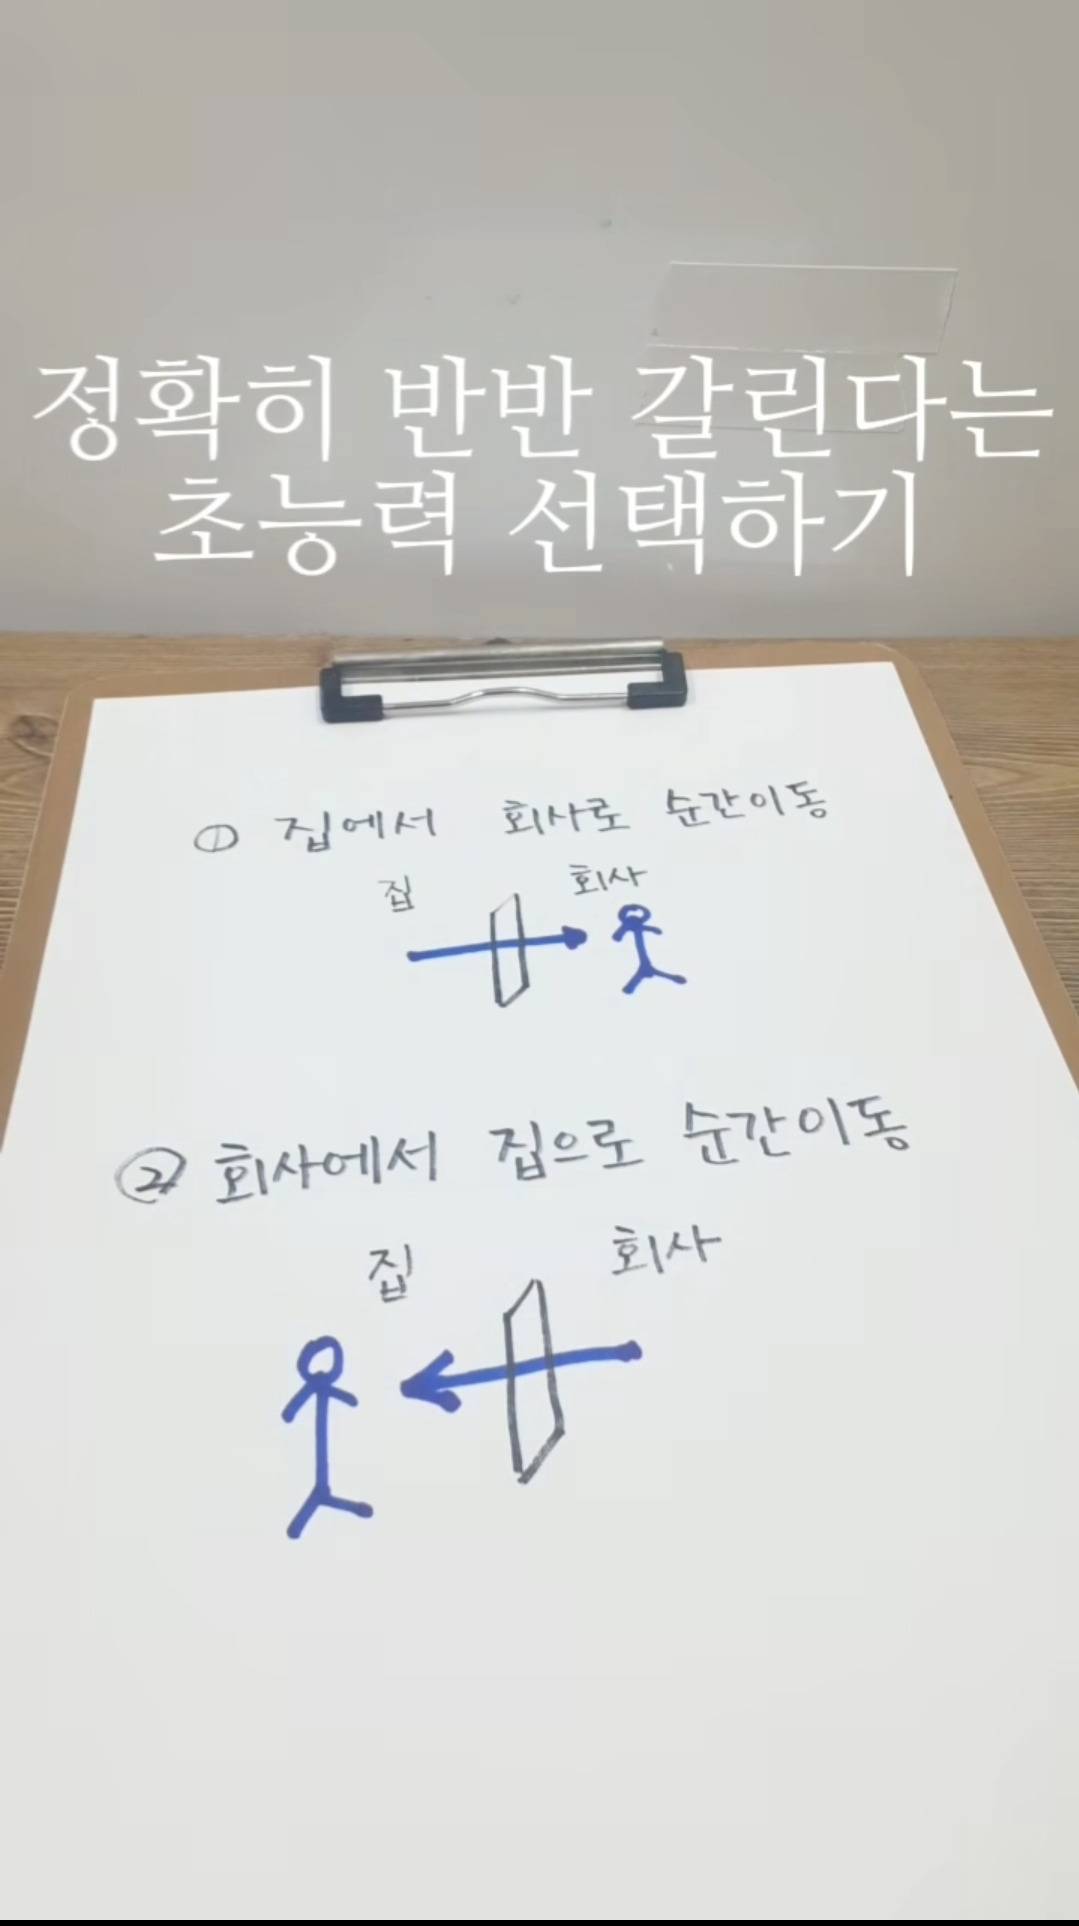 정확히 반반 갈린다는
초능력 선택하기
① 집에서 회사로 순간이동
집 회사
② 회사에서 집으로 순간이동
집 회사